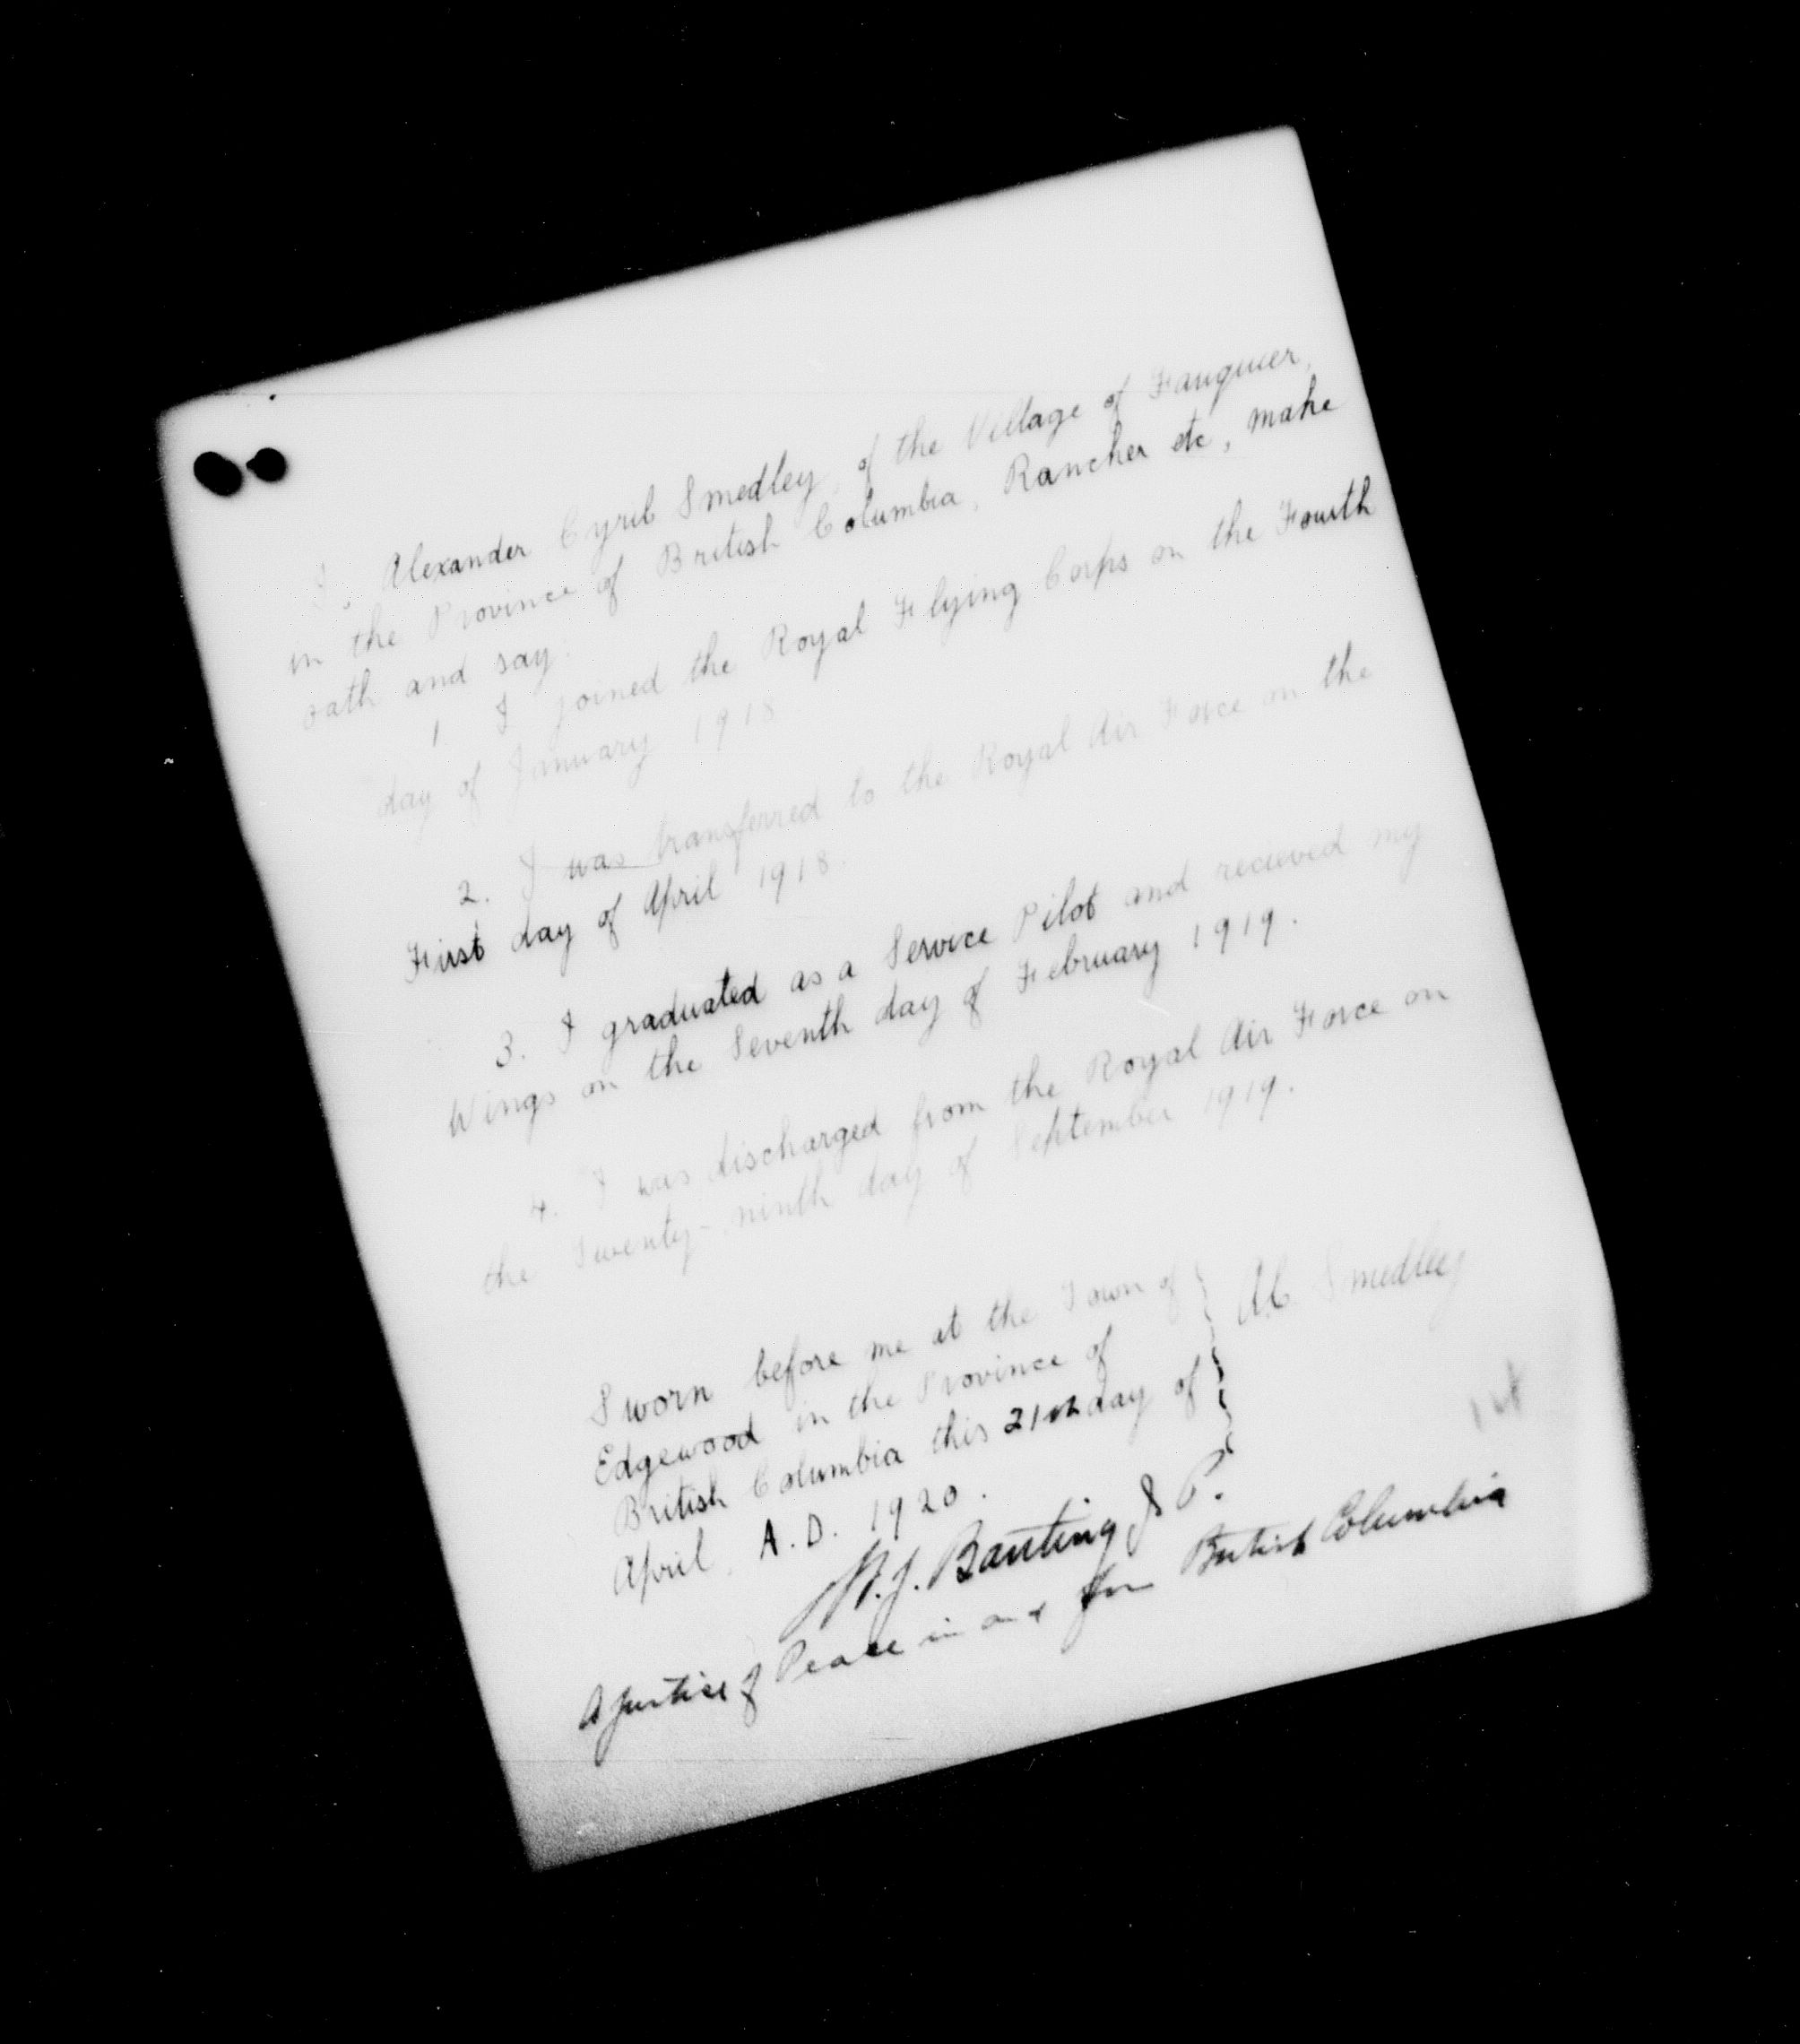 I, Alexander Cyril Smedley, of the Village of Fauquier,
in the Province of British Columbia, Rancher etc, make
oath and say:
1 I joined the Royal Flying Corps on the Fourth
day of January 1918
2. I was transferred to the Royal Air Force on the
First day of April 1918.
3. I graduated as a Service Pilot and recieved my
Wings on the Seventh day of February 1919.
4. I was discharged from the Royal Air Force on
the Twenty-ninth day of September 1919.
Sworn before me at the Town of
Edgewood in the Province of
British Columbia this 21st day of
April, A.D. 1920.
A.C. Smedley
W.J. Banting J P.
A Justice of Peace in and for British Columbia